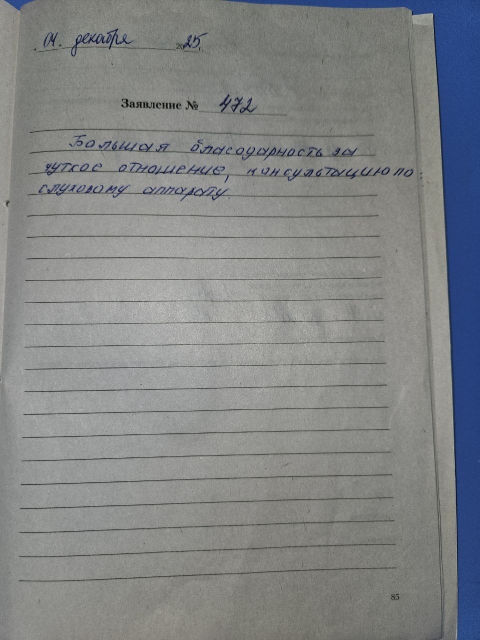 04. декабря 2025.
Заявление № 472
Большая благодарность за
чуткое отношение, консультацию по
слуховому аппарату
85